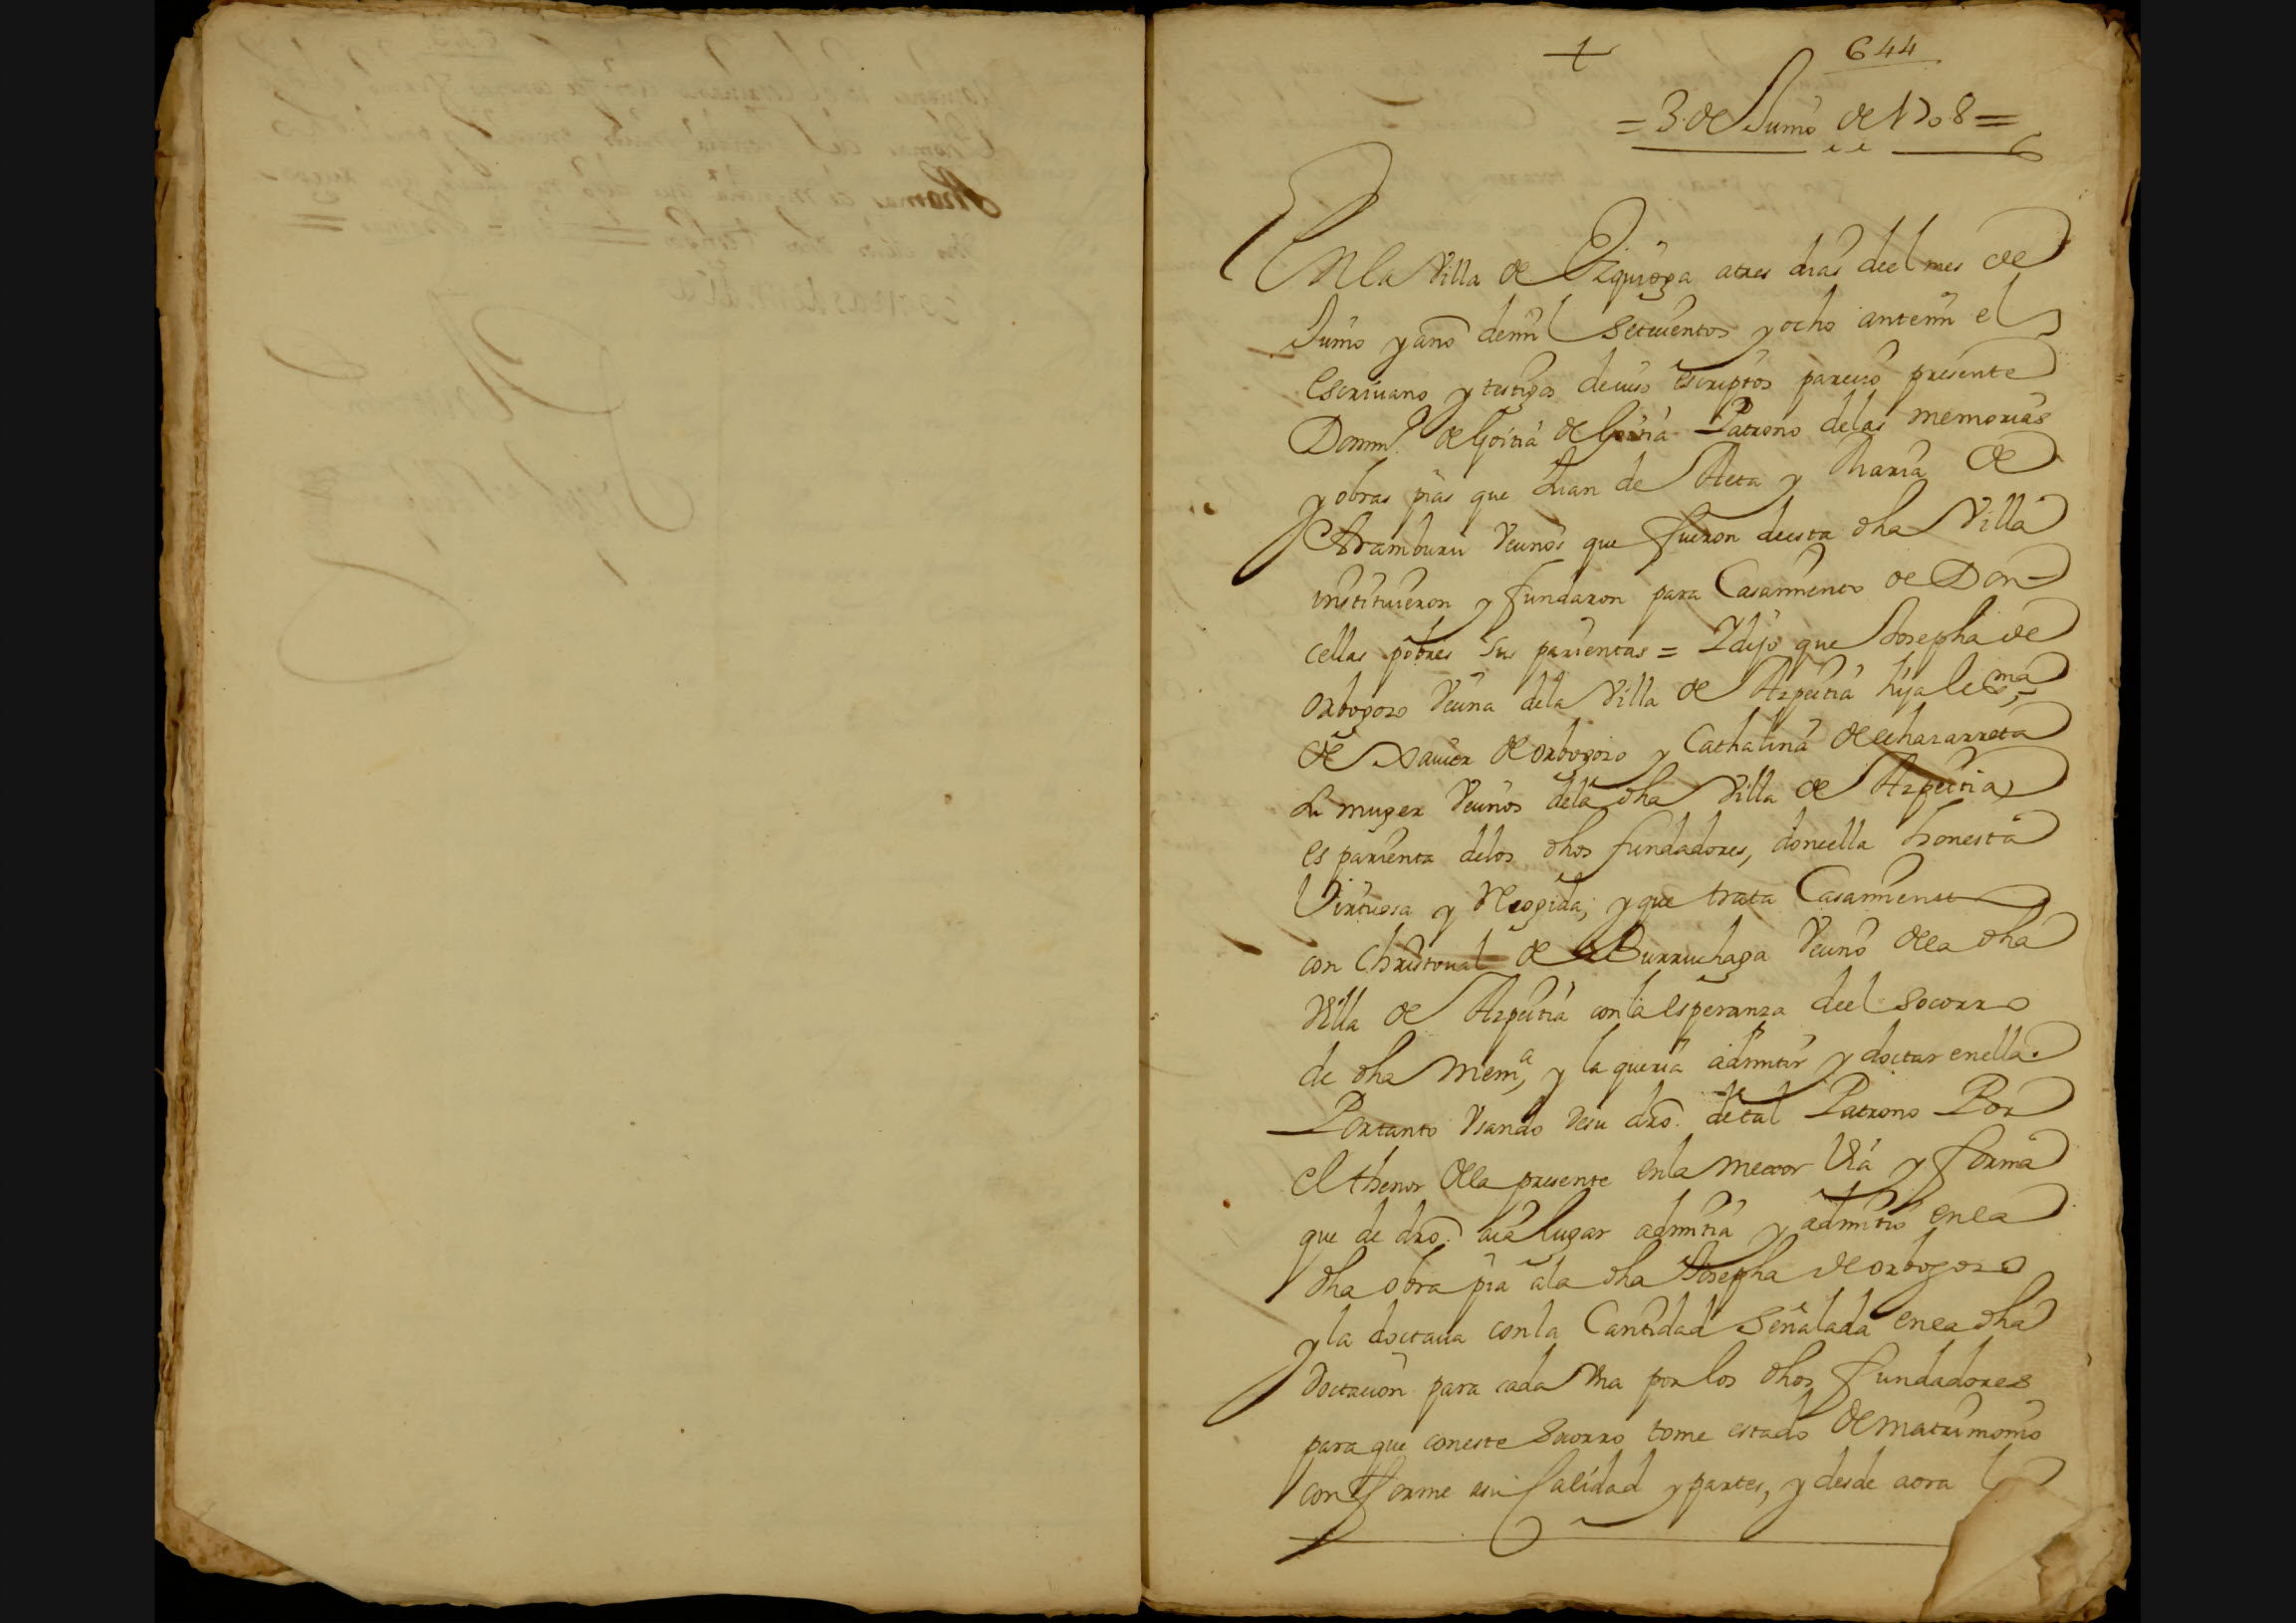 644
= 3 de Junio de 1708 =
En la Villa de Ezquioga atres dias deel mes de
Junio y año demil setecientos y ocho antemi el
escriuano y testigos deiuso escriptos parecio presente
Domin.º de Goitia de Goitia Patrono delas memorias
y obras pias que Juan de Aleta y Maria de
Aramburu Vecinos que fueron deesta dha Villa
instituieron y fundaron para Casamiento de Don-
cellas pobres sus parientas = Y dijo que Josepha de
orbegozo Vecina dela Villa de Azpeitia hija legma
de Xauier de orbegozo y Cathalina de echazarreta
su muger Vecinos dela dha Villa de Azpeitia
es parienta delos dhos fundadores, doncella honesta
Virtuosa y Recogida; y que trata Casamiento
con Christoual de Burruchaga Vecino dela dha
Villa de Azpeitia con la esperanza deel socorro
de dha mem.a, y la queria admitir y doctar enella.
Portanto Vsando desu dro. detal Patrono Por
el thenor dela presente enla mexor Via y forma
que de dro. aia lugar admitia y admitio enla
dha obra pia ala dha Josepha de orbegozo
y la doctaua conla Cantidad señalada enla dha
doctacion para cada Vna por los dhos fundadores
para que coneste socorro tome estado de matrimonio
conforme asu Calidad y partes, y desde aora